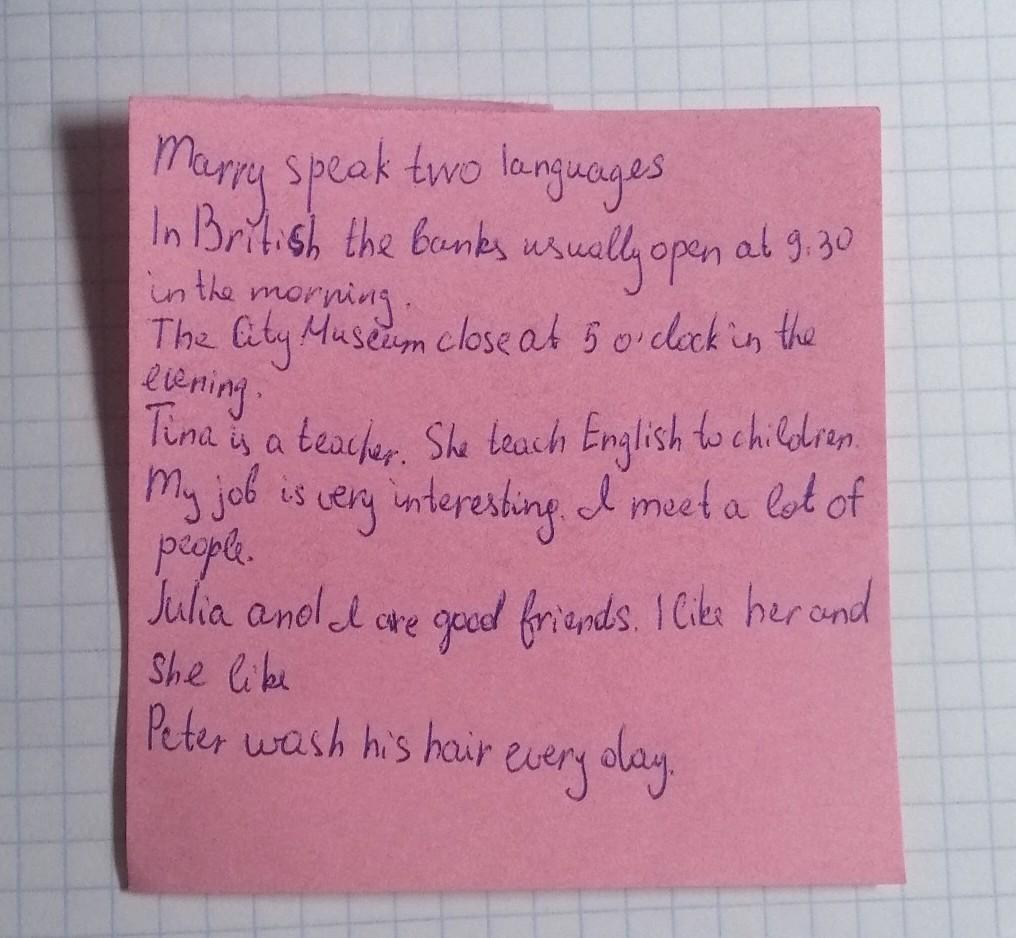 Marry speak two languages
In British the banks usually open at 9:30
in the morning.
The City Museum close at 5 o'clock in the
evening.
Tina is a teacher. She teach English to children.
My job is very interesting. I meet a lot of
people.
Julia and I are good friends. I like her and
she like
Peter wash his hair every day.